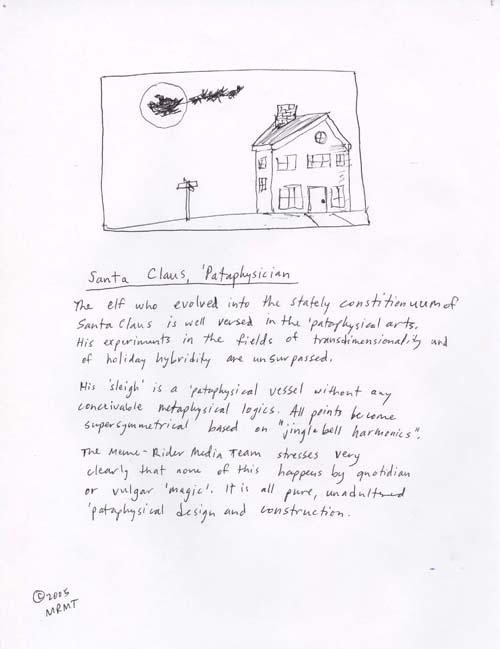 Santa Claus, 'Pataphysician
The elf who evolved into the stately constitionuum of
Santa Claus is well versed in the 'pataphysical arts.
His experiments in the fields of transdimensionality and
of holiday hybridity are unsurpassed.
His 'sleigh' is a 'pataphysical vessel without any
conceivable metaphysical logics. All points become
supersymmetrical based on "jinglebell harmonics".
The Meme-Rider Media Team stresses very
clearly that none of this happens by quotidian
or vulgar 'magic'. It is all pure, unadultured
'pataphysical design and construction.
©2005
MRMT